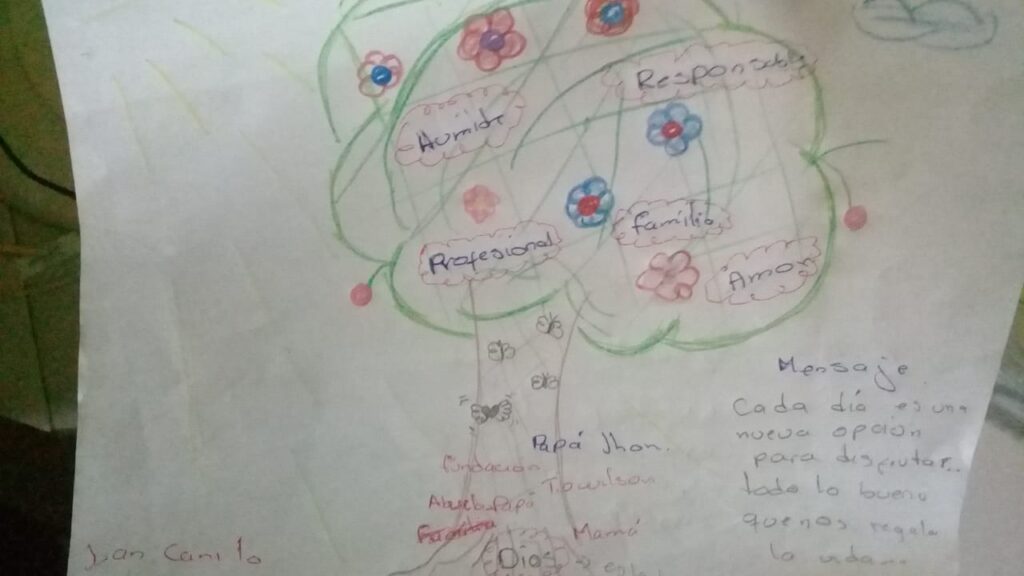 Responsable
Aumide
Familia
Profesional
Amor
Mensaje
Cada día es una
nueva opción
para disfrutar..
todo lo bueno
que nos regala
la vida...
Papá Jhon.
Fundación
Abuelo Papá
Mamá
Dios
Juan Camilo